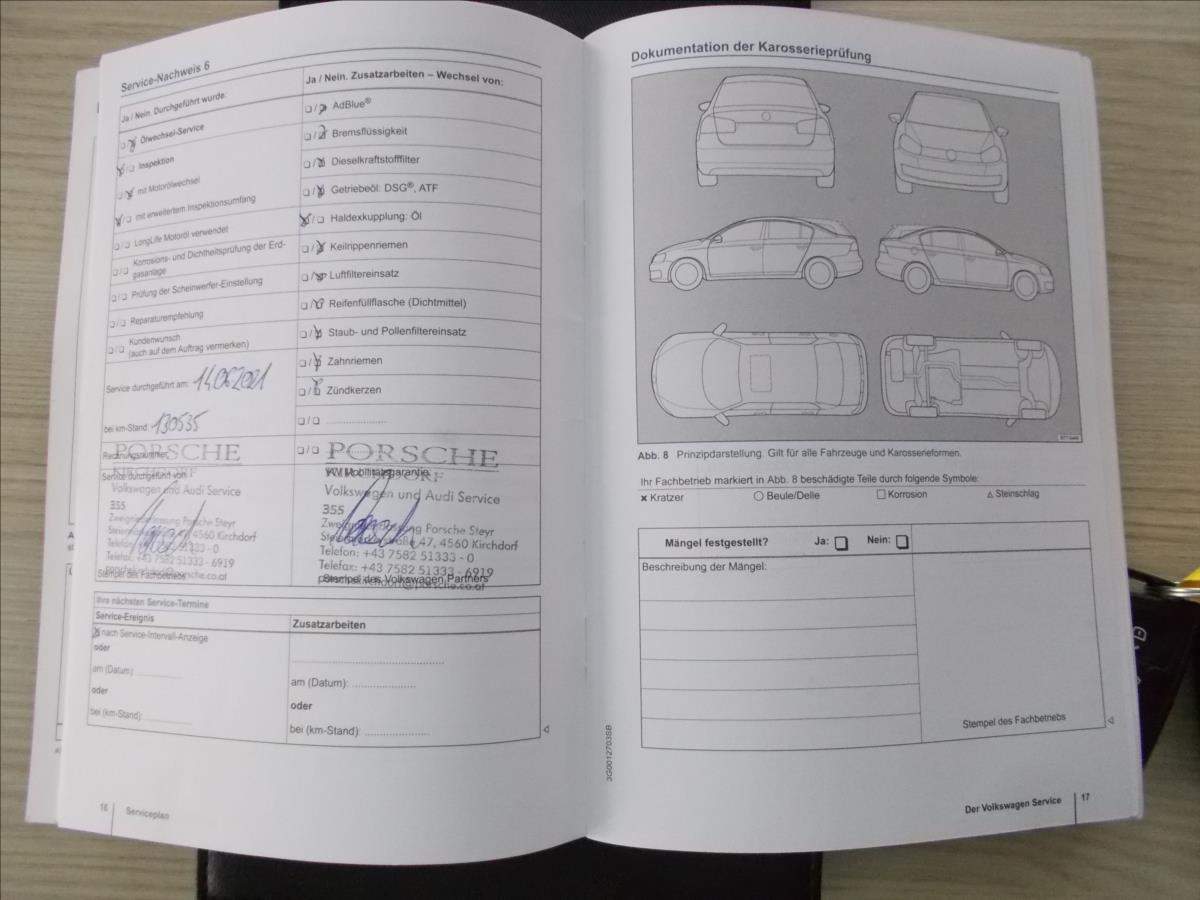 Service-Nachweis 6
Ja / Nein. Durchgeführt wurde:
Ölwechsel-Service
Inspektion
mit Motorölwechsel
mit erweitertem Inspektionsumfang
LongLife Motoröl verwendet
Korrosions- und Dichtheitsprüfung der Erd-
gasanlage
Prüfung der Scheinwerfer-Einstellung
Reparaturempfehlung
Kundenwunsch
(auch auf dem Auftrag vermerken)
Service durchgeführt am: 14.06.2021
bei km-Stand: 130535
Rechnungsnummer:
PORSCHE
Service durchgeführt von:
KIRCHDORF
Volkswagen und Audi Service
355
Zweigniederlassung Porsche Steyr
4560 Kirchdorf
Telefon: +43 7582 51333 - 0
Telefax: +43 7582 51333 - 6919
Stempel des Fachbetriebs
Ja / Nein. Zusatzarbeiten – Wechsel von:
AdBlue®
Bremsflüssigkeit
Dieselkraftstofffilter
Getriebeöl: DSG®, ATF
Haldexkupplung: Öl
Keilrippenriemen
Luftfiltereinsatz
Reifenfüllflasche (Dichtmittel)
Staub- und Pollenfiltereinsatz
Zahnriemen
Zündkerzen
PORSCHE
VW Mobilitätsgarantie
KIRCHDORF
Volkswagen und Audi Service
355
Zweigniederlassung Porsche Steyr
47, 4560 Kirchdorf
Telefon: +43 7582 51333 - 0
Telefax: +43 7582 51333 - 6919
Stempel des Volkswagen Partners
Ihre nächsten Service-Termine
Service-Ereignis
nach Service-Intervall-Anzeige
oder
am (Datum):
oder
bei (km-Stand):
Zusatzarbeiten
am (Datum):
oder
bei (km-Stand):
16 Serviceplan
Dokumentation der Karosserieprüfung
Abb. 8 Prinzipdarstellung. Gilt für alle Fahrzeuge und Karosserieformen.
Ihr Fachbetrieb markiert in Abb. 8 beschädigte Teile durch folgende Symbole:
Kratzer Beule/Delle Korrosion Steinschlag
Mängel festgestellt? Ja: Nein:
Beschreibung der Mängel:
Stempel des Fachbetriebs
3G0012703SB
Der Volkswagen Service 17